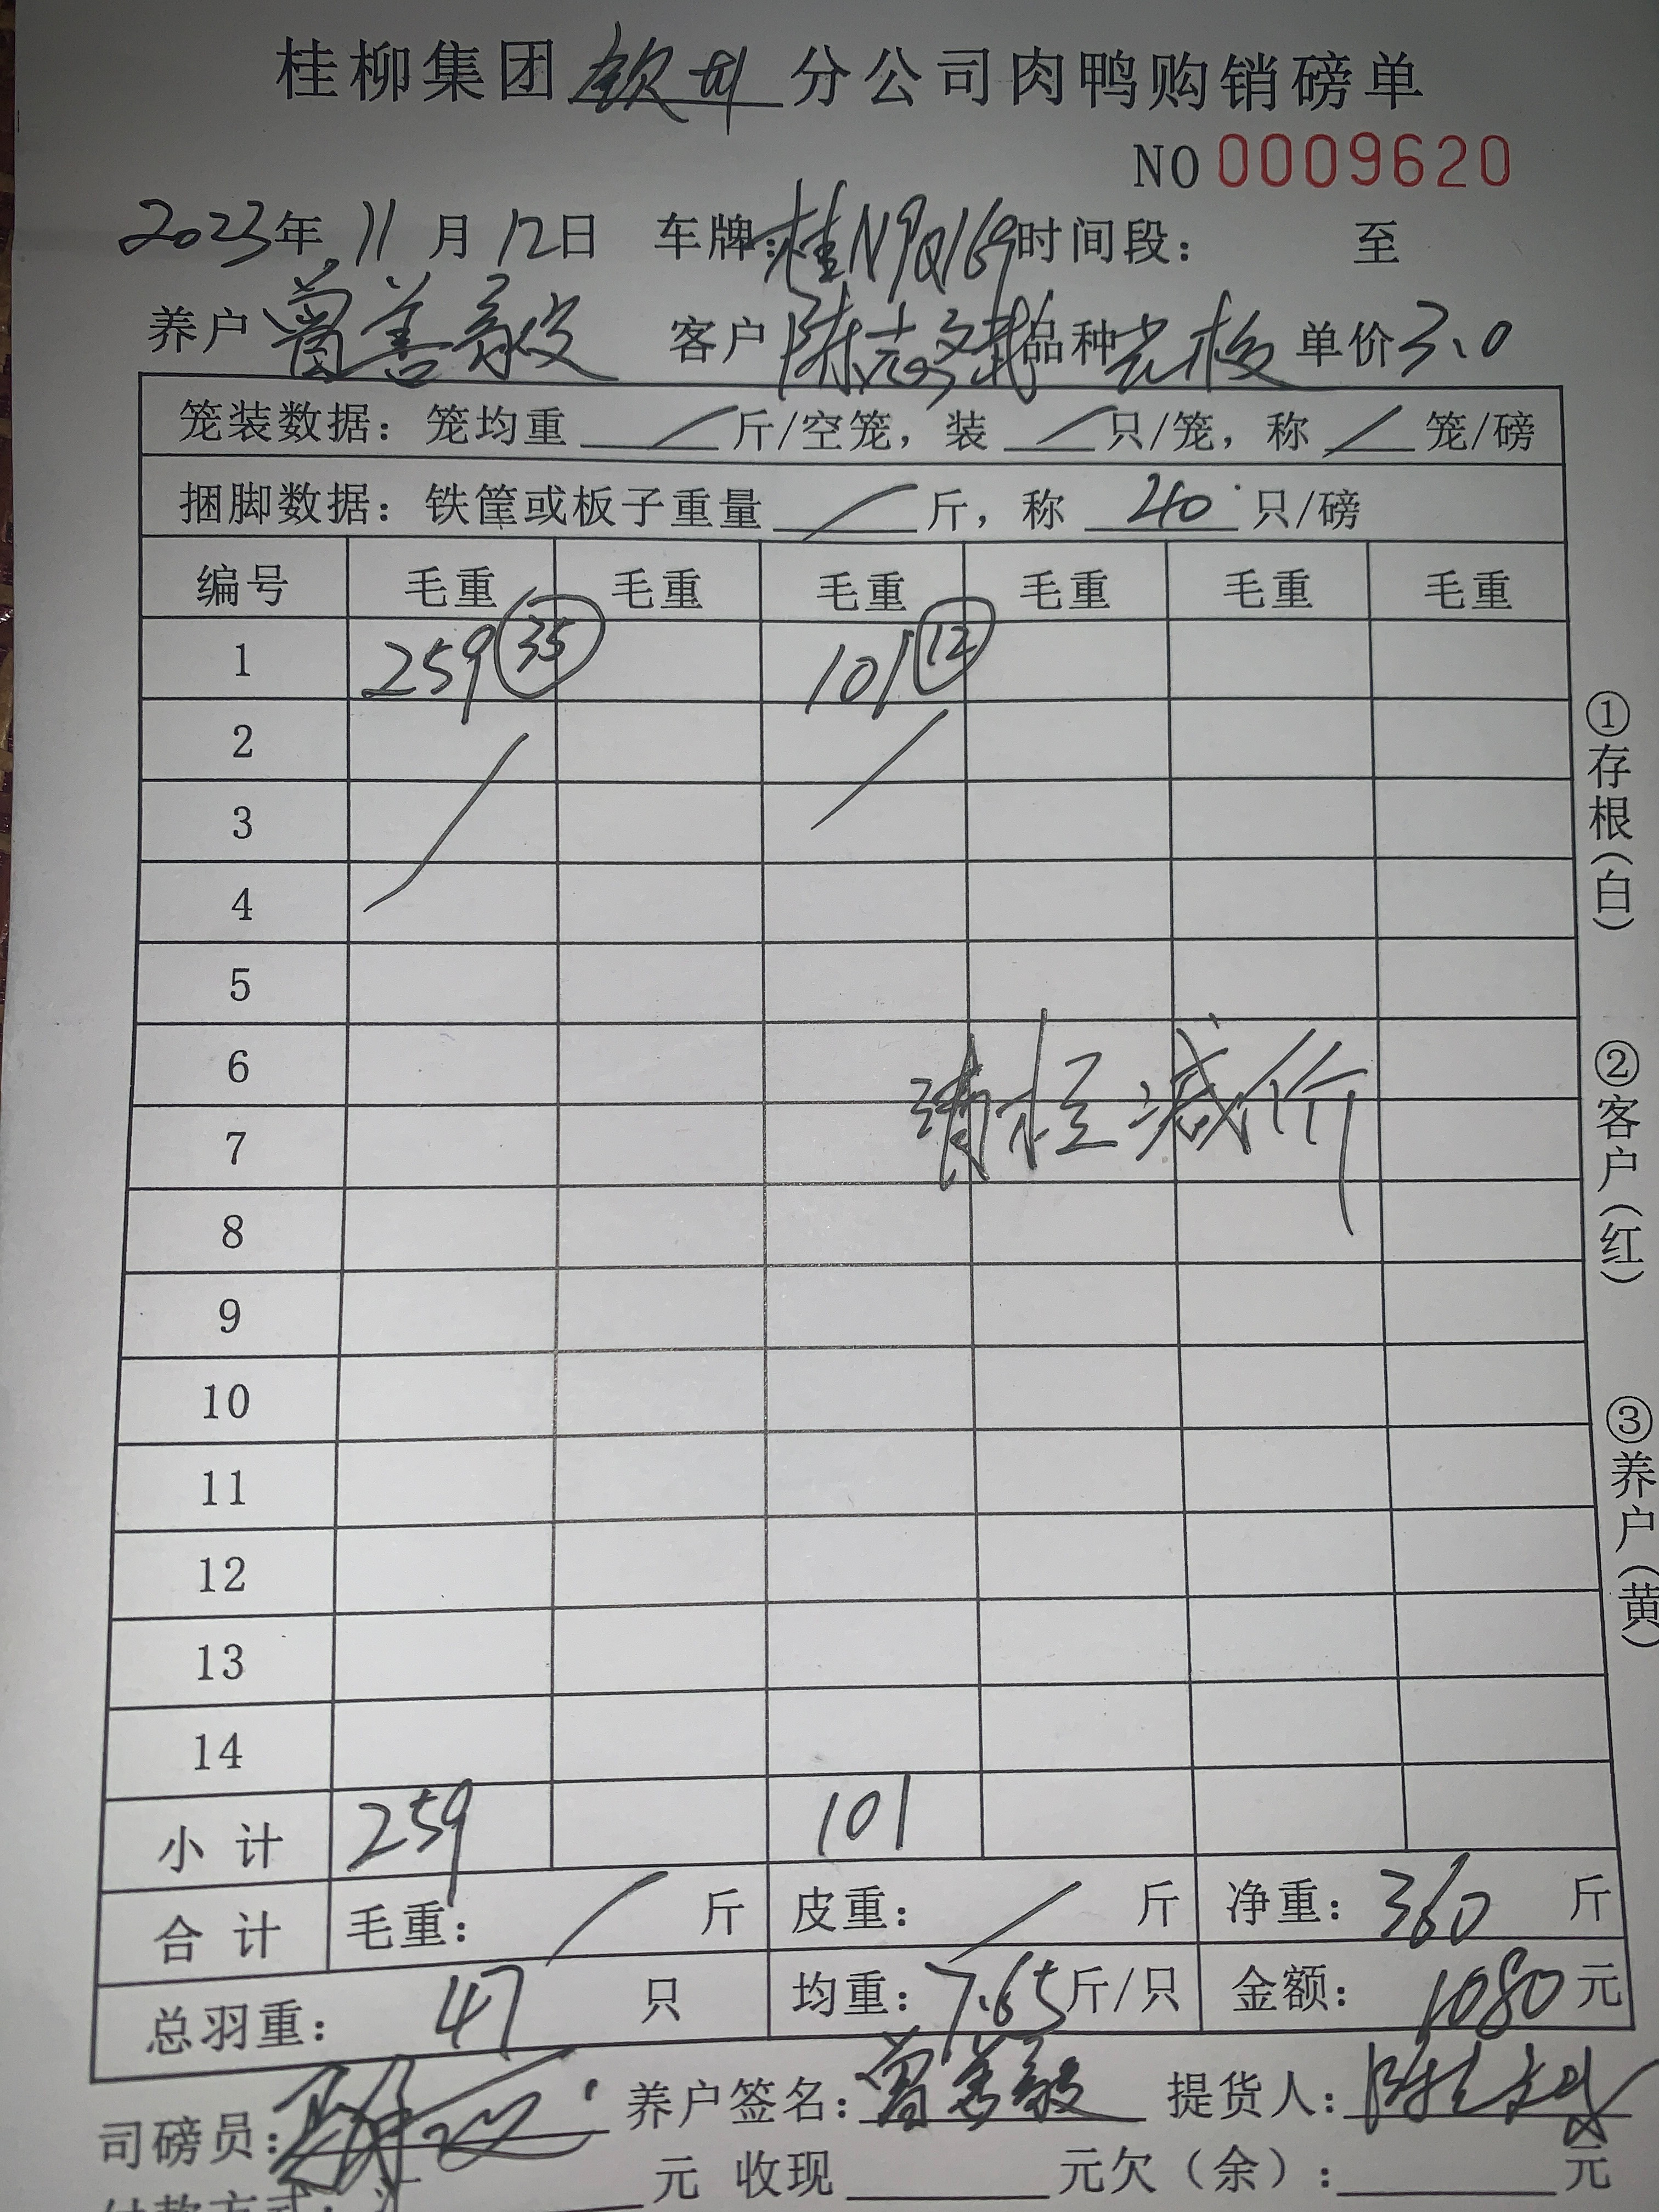 桂柳集团 钦州 分公司肉鸭购销磅单
NO 0009620
2023年 11 月 12日 车牌:桂N9Q169 时间段: 至
养户 曾善敏 客户 陈志 品种 单价 3.0
笼装数据: 笼均重 / 斤/空笼, 装 / 只/笼, 称 / 笼/磅
捆脚数据: 铁筐或板子重量 / 斤, 称 40 只/磅
编号 毛重 毛重 毛重 毛重 毛重 毛重
1 259 35 101 12
2
3
4
5
6
7
减价
8
9
10
11
12
13
14
小计 259 101
合计 毛重: / 斤 皮重: / 斤 净重: 360 斤
总羽重: 47 只 均重: 7.65 斤/只 金额: 1080 元
司磅员: 养户签名: 曾善敏 提货人: 陈志
付款方式: 元 收现 元欠(余): 元
①存根(白)
②客户(红)
③养户(黄)